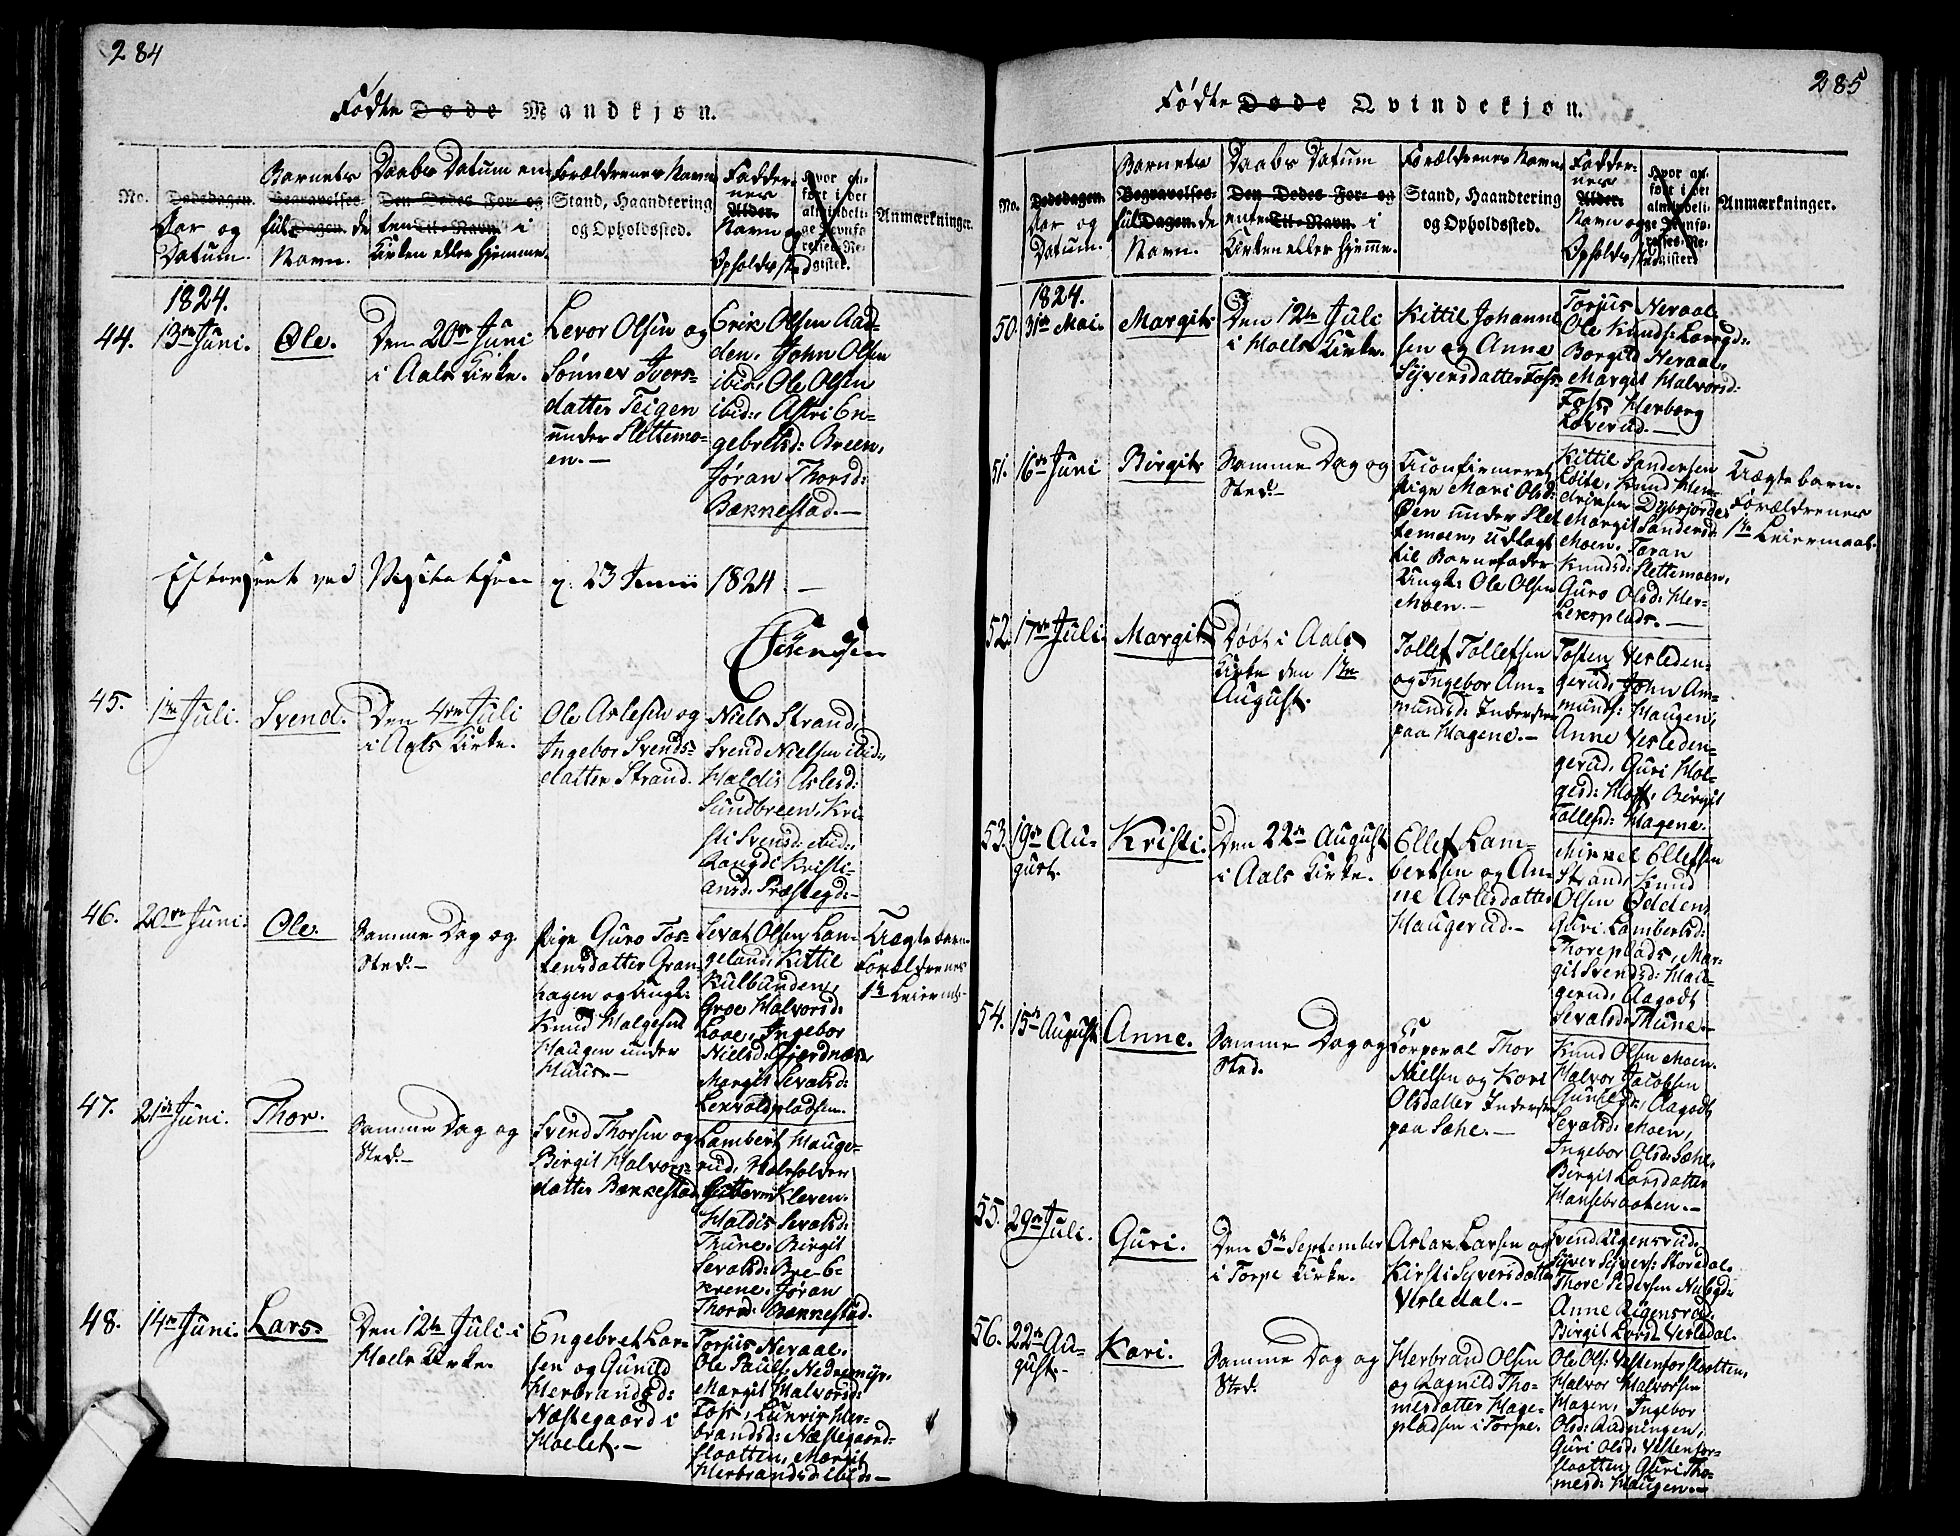 284
Fødte Døde Mandkjøn.
No.
Dødsdagen.
Aar og
Datum.
Barnets
Begravelses-
ful Dagen. de
Navn.
Daabs Datum en
Den Dødes For- og
ten Til-Navn. i
Kirken eller hjemme.
Forældrenes Navn
Stand, Haandtering
og Opholdssted.
Fadder-
nes
Alder.
Navn og
Opholdssted
Hvor an-
ført i det
almindeli-
ge Jevnfø-
relses-Re-
gister.
Anmærkninger.
1824.
44.
13de Juni.
Ole.
Den 20de Juni
i Aals Kirke.
Levor Olsen og
Sønnev Ivers-
datter Teigen
under Slettemo-
en.-
Erik Olsen Aad-
den, John Olsen
ibid: Ole Olsen
ibid: Astri En-
gebretsd: Breen,
Jøran Thorsd:
Bækkestad.-
Efterseet ved Visitatsen d. 23 Junii 1824.-
Sørensen
45.
1ste Juli.
Svend.
Den 4de Juli
i Aals Kirke.
Ole Aslesen og
Ingebor Svends-
datter Strand.
Niels Strand,
Svend Nielsen ibid:,
Haldis Aslesd:
Sundbreen, Kri-
sti Svensd: ibid:,
Rangdi Kristi-
ansd: Præstegd:-
46.
20de Juni.
Ole.
Samme Dag og
Sted.-
Pige Guro Tos-
tensdatter Gran-
hagen og Ungk:
Knud Halgesen
Haugen under
Huus.-
Sevat Olsen Lan-
geland, Kittil
Kulbunden,
Groe Halvorsd:
Loae, Ingebor
Nielsd: Gjerdnæs,
Margit Sevatsd:
Lexvoldpladsen.
Uægte barn.
Forældrenes
1ste Leierm:-
47.
21de Juni.
Thor.
Samme Dag og
Sted.-
Svend Thorsen og
Birgit Halvors-
datter Bækkestad
Lambert Hauge-
rud,
Kleven.
Haldis Sevatsd:
Thune. Birgit
Sevatsd: Bre-b-
kkene. Jøran
Thorsd: Bækkestad.
48.
14de Juni.
Lars.
Den 12te Juli i
Hoels Kirke.
Engebret Lar-
sen og Gunild
Herbrandsd:
Næstegaard i
Hoelet.-
Torjus Neraal.
Ole Pauls: Nedremyr,
Margit Halvorsd:
Foss, Kunrig Her-
brandsd: Næstegaard-
slaatten, Margit
Herbrandsd: ibid:-
285
Fødte Døde Qvindekjøn.
No.
Dødsdagen.
Aar og
Datum.
Barnets
Begravelses-
ful Dagen. de
Navn.
Daabs Datum
Den Dødes For- og
enten Til-Navn. i
Kirken eller Hjemme.
Forældrenes Navn
Stand, Haandtering
og Opholdssted.
Fadder-
nes
Alder.
Navn og
Opholdssted
Hvor an-
ført i det
almindeli-
ge Jevnfø-
relses-Re-
gister.
Anmærkninger.
1824.
50.
31te Mai.
Margit.
Den 12te Juli
i Hoels Kirke.
Kittil Johanne-
sen og Anne
Syversdatter Foss.
Torjus Neraal,
Ole Knuds: Loregd:
Borgild Neraal,
Margit Halvorsd:
Foss, Herborg
Loverud.-
51.
16de Juni
Birgit.
Samme Dag og
Sted.-
Uconfirmeret
Pige Mari Olsd:
Øen under Slet-
temoen, udlagt
til Barnefader
Ungk: Ole Olsen
Moen.-
Kittil Sandersen
Loite, Knud Hen-
driksen Dybsjorde,
Margit Sandersd:
Moen. Jøran
Knudsd: Slettemoen,
Guro Olsd: Her-
leksplads.-
Uægte barn.
Forældrenes
1ste Leiermaal.
52.
17de Juli.
Margit.
Døbt i Aals
Kirke den 1ste
August.
Tollef Tollefsen
og Ingebor Am-
mundsd: Inderster
paa Hagene.-
Tosten Versleden-
gerud, John Am-
munds: Haugen,
Anne Versleden-
gerud, Guri Hol-
gesd: Hoff, Birgit
Tollefsd: Hagene.
53.
19de Au-
gust.
Kristi.
Den 22de August
i Aals Kirke.
Ellef Lam-
bertsen og An-
ne Aslesdatter
Haugerud.-
Mikkel Ellefsen
Strand, Knud
Olsen Odden,
Guri Lambertsd:
Thoreplads, Mar-
git Svendsd: Hau-
gerud, Aagodt
Sevatsd: Thune.-
54.
15de August
Anne.
Samme Dag og
Sted.
Corporal Thor
Nielsen og Kari
Olsdatter Inderster
paa Sæhe.-
Knud Olsen Moen.
Halvor Jacobsen
Gunleg:, Aagodt
Sevatsd: Moen,
Ingebor Olsd: Sæhe,
Birgit Larsdatter
Hansebraaten.-
55.
29de Juli.
Guri.
Den 5te September
i Torpe Kirke.
Aslak Larsen og
Kirsti Syversdatter
Versledal.-
Svend Rigensrud,
Syver Syvers: Storedal,
Thore Pedersen Nubgd:
Anne Rigensrud,
Birgit Larsd: Versledal.
56.
22de Au-
gust.-
Kari.
Samme Dag og
Sted.
Herbrand Olsen
og Ragnild Tho-
mesdatter Hage-
pladsen i Torpe.
Ole Ols: Vestenforslaatten,
Halvor Halvorsen
Hagen, Ingebor
Olsd: Rudningen,
Guri Olsd: Vestenfor-
slaatten, Guri Tho-
mesd: Haugen.-